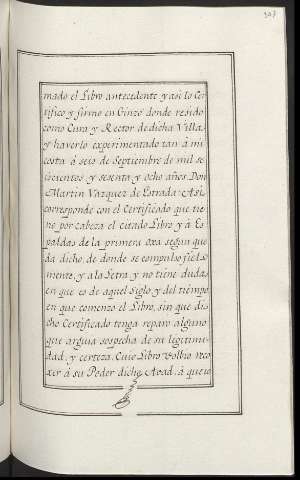 307
mado el Libro antecedente y asi lo Cer
tifico y firmo en Ginzo donde resido
como Cura y Rector de dicha Villa,
y haverlo experimentado tan á mi
costa á seis de Septiembre de mil se
iscientos y sesenta y ocho años Don
Martin Vazquez de Estrada: Asi
corresponde con el Certificado que tie
ne por cabeza el citado Libro y á Es
paldas de la primera oxa segun que
da dicho, de donde se compulso fiel
mente, y a la Letra y no tiene dudas
en que es de aquel siglo, y del tiempo
en que comenzo el Libro, sin que di
cho Certificado tenga reparo alguno
que arguia sospecha de su legitimi
dad, y certeza. Cuio Libro volbio reco
xer á su Poder dicho Abad, á que